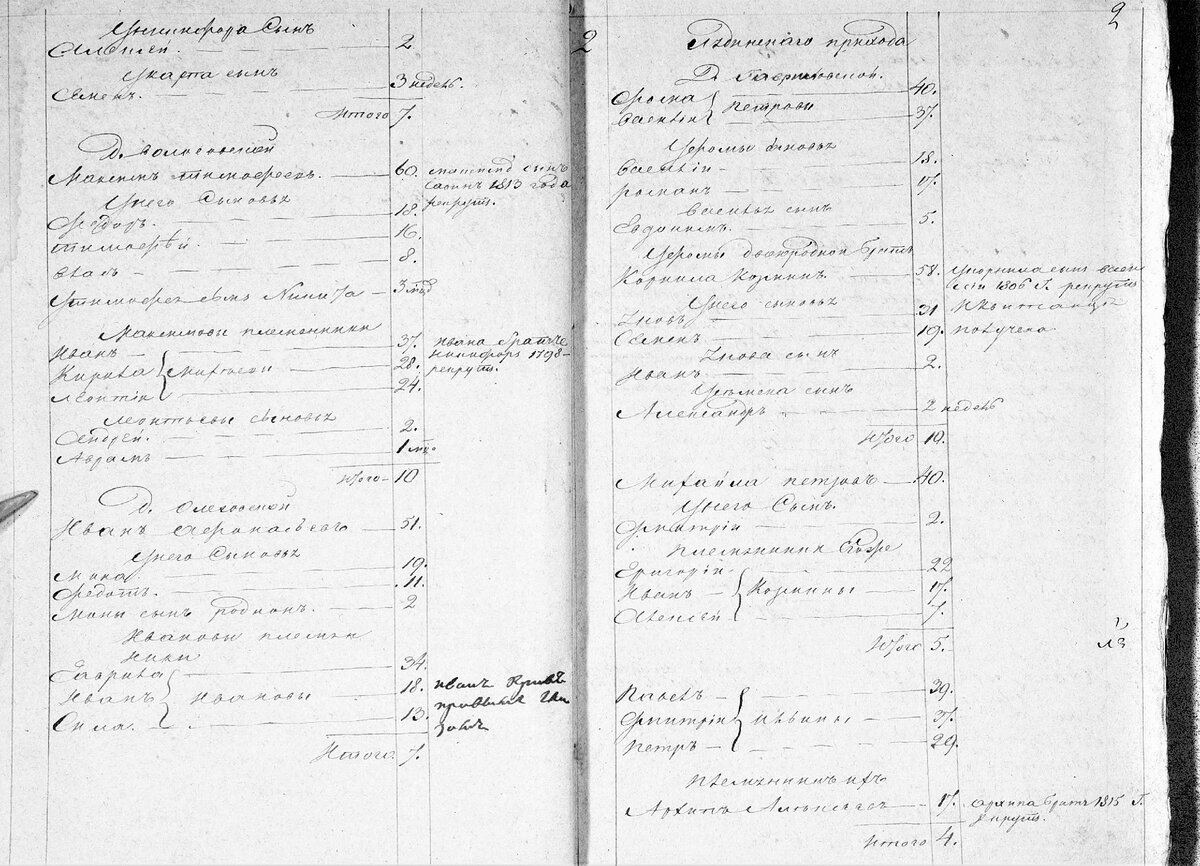 У Никифора Сынъ
Алексей. — 2
У карпа сынъ
Семенъ. — 3 недел.
Итого 7.
Д. Волосовской
Максимъ Тимофеевъ. — 60. Матвей сынъ
Сынъ 1813 года
рекрут.
У него Сыновья
Федоръ. — 18.
Тимофей. — 16.
— 8.
У Тимофея сынъ Никита — 3 мѣс
Максимовы племянники
Иванъ — 37. Ивана братъ
Никифоръ 1798
рекрут.
Кирила — 28.
Матвеевы
Леонтiй — 24.
Леонтьевы сыновья
Андрей. — 2.
Аврамъ — 1 мѣс.
Итого — 10
Д. Олеховской
Иванъ Афонасьевъ — 51.
У него Сыновья
Мина. — 19.
Федотъ. — 11.
Мины сынъ Родионъ. — 2
Ивановы племян
ники
Гаврила — 34.
Иванъ Ивановы — 18. иванъ
Сила. — 13.
Итого 7.
2
2
прихода
Д. Гавриловской.
Фома — 40.
Петровы
Василiй — 37.
У Фомы сыновья
Василiй — 18.
Романъ — 17.
Василья сынъ
Евдокимъ. — 5.
У Фомы двоюродной братъ
Корнила Козминъ — 58. У Корнила сынъ Васи
лiй 1806 г. рекрут
У него сыновья
31 И квитанцiя
Семенъ — 19. получена
сынъ
Иванъ — 2.
У Семена сынъ
Александръ — 2 недель
Итого 10.
Михайла Петровъ — 40.
У него Сынъ.
Дмитрiй — 2.
Племянники
Григорiй — 22
Иванъ — Козмины — 17.
Алексей — 7.
Итого 5.
Павелъ — 39.
Дмитрiй — 37.
Петръ — 29.
Племянникъ ихъ
Архипъ Алексеевъ — 17. Архипа братъ 1815 г.
рекрут.
Итого 4.